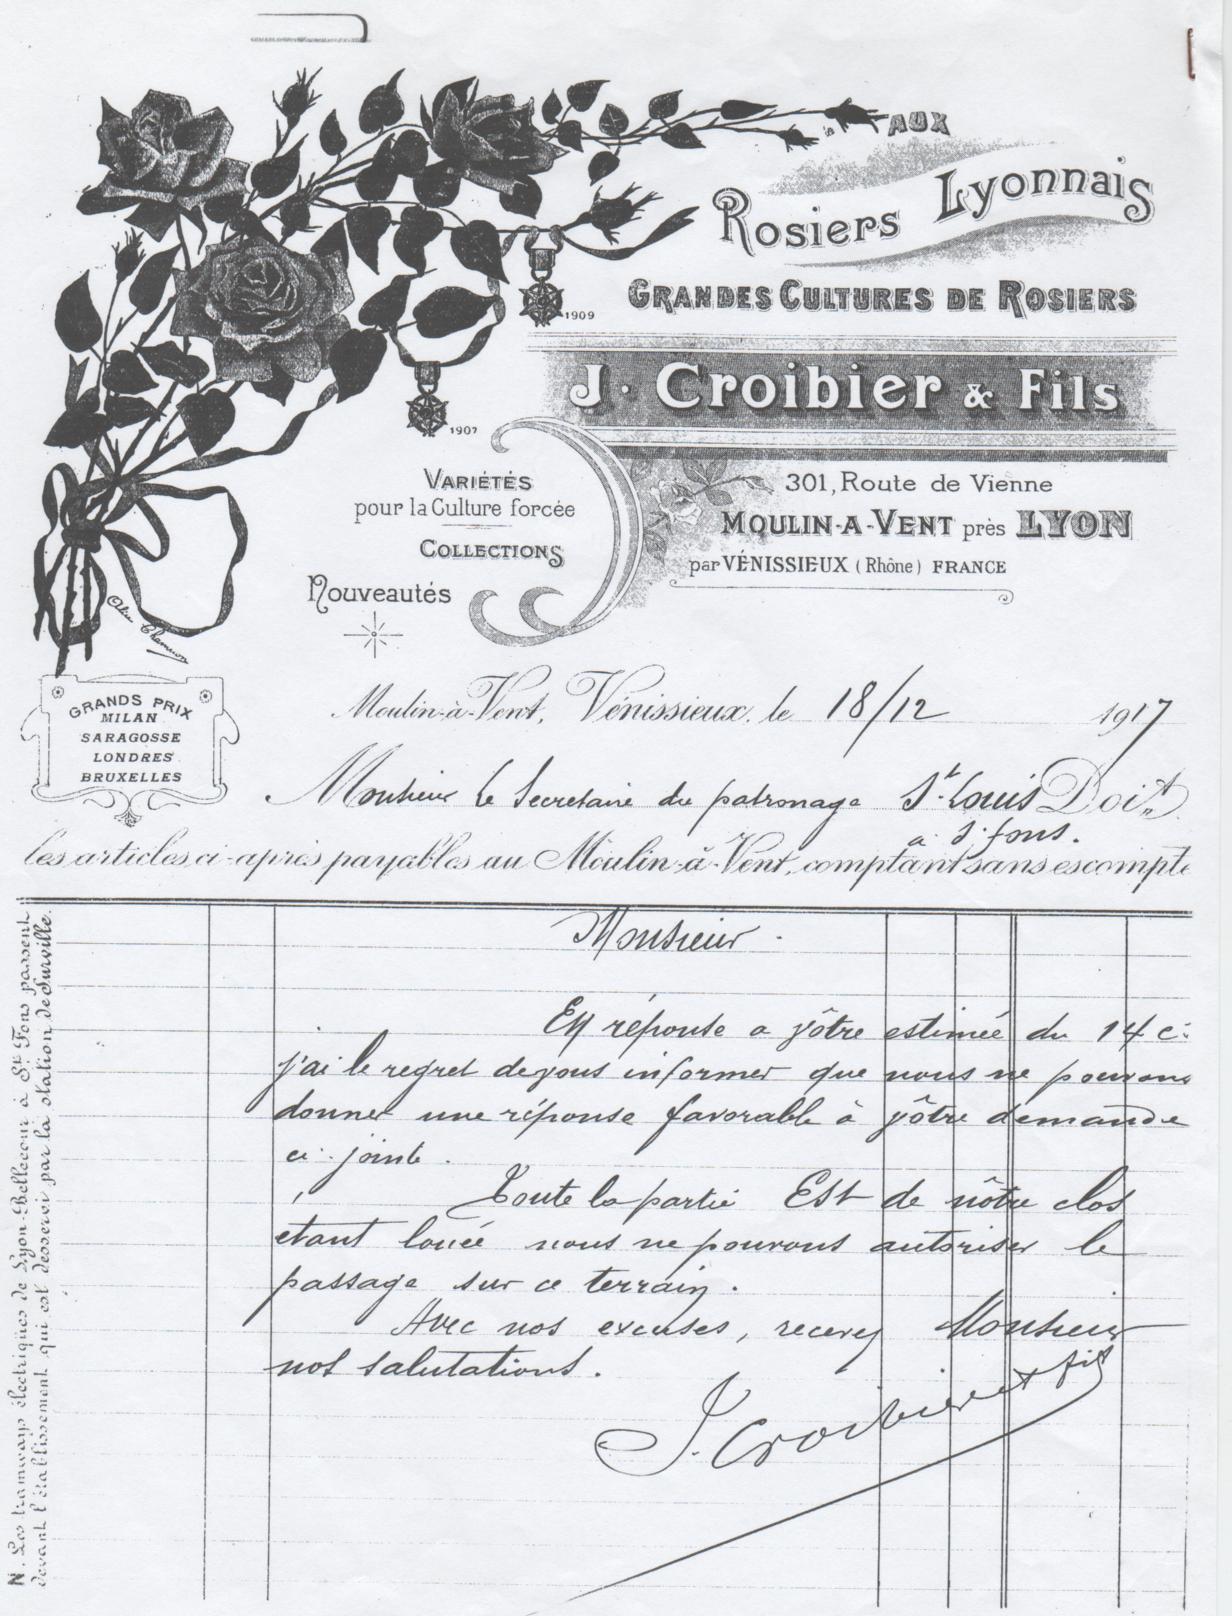 AUX
Rosiers Lyonnais
GRANDES CULTURES DE ROSIERS
1909
J. Croibier & Fils
1907
VARIÉTÉS
pour la Culture forcée
COLLECTIONS
Nouveautés
301, Route de Vienne
MOULIN-A-VENT près LYON
par VÉNISSIEUX (Rhône) FRANCE
GRANDS PRIX
MILAN
SARAGOSSE
LONDRES
BRUXELLES
Moulin-à-Vent, Vénissieux, le 18/12 1917
Monsieur le Secretaire du patronage St. Louis Doit
a St. fons.
les articles ci-après payables au Moulin-à-Vent, comptant sans escompte
Monsieur.
En réponse a vôtre estimée du 14 c:
j'ai le regret de vous informer que nous ne pouvons
donner une réponse favorable à vôtre demande
ci-jointe.
Toute la partie Est de nôtre clos
étant louée nous ne pouvons autoriser le
passage sur ce terrain.
Avec nos excuses, recevez Monsieur
nos salutations.
J. Croibier et fils
N. Les tramways électriques de Lyon-Bellecour à St. Fons passent
devant l'établissement qui est desservi par la station de Surville.